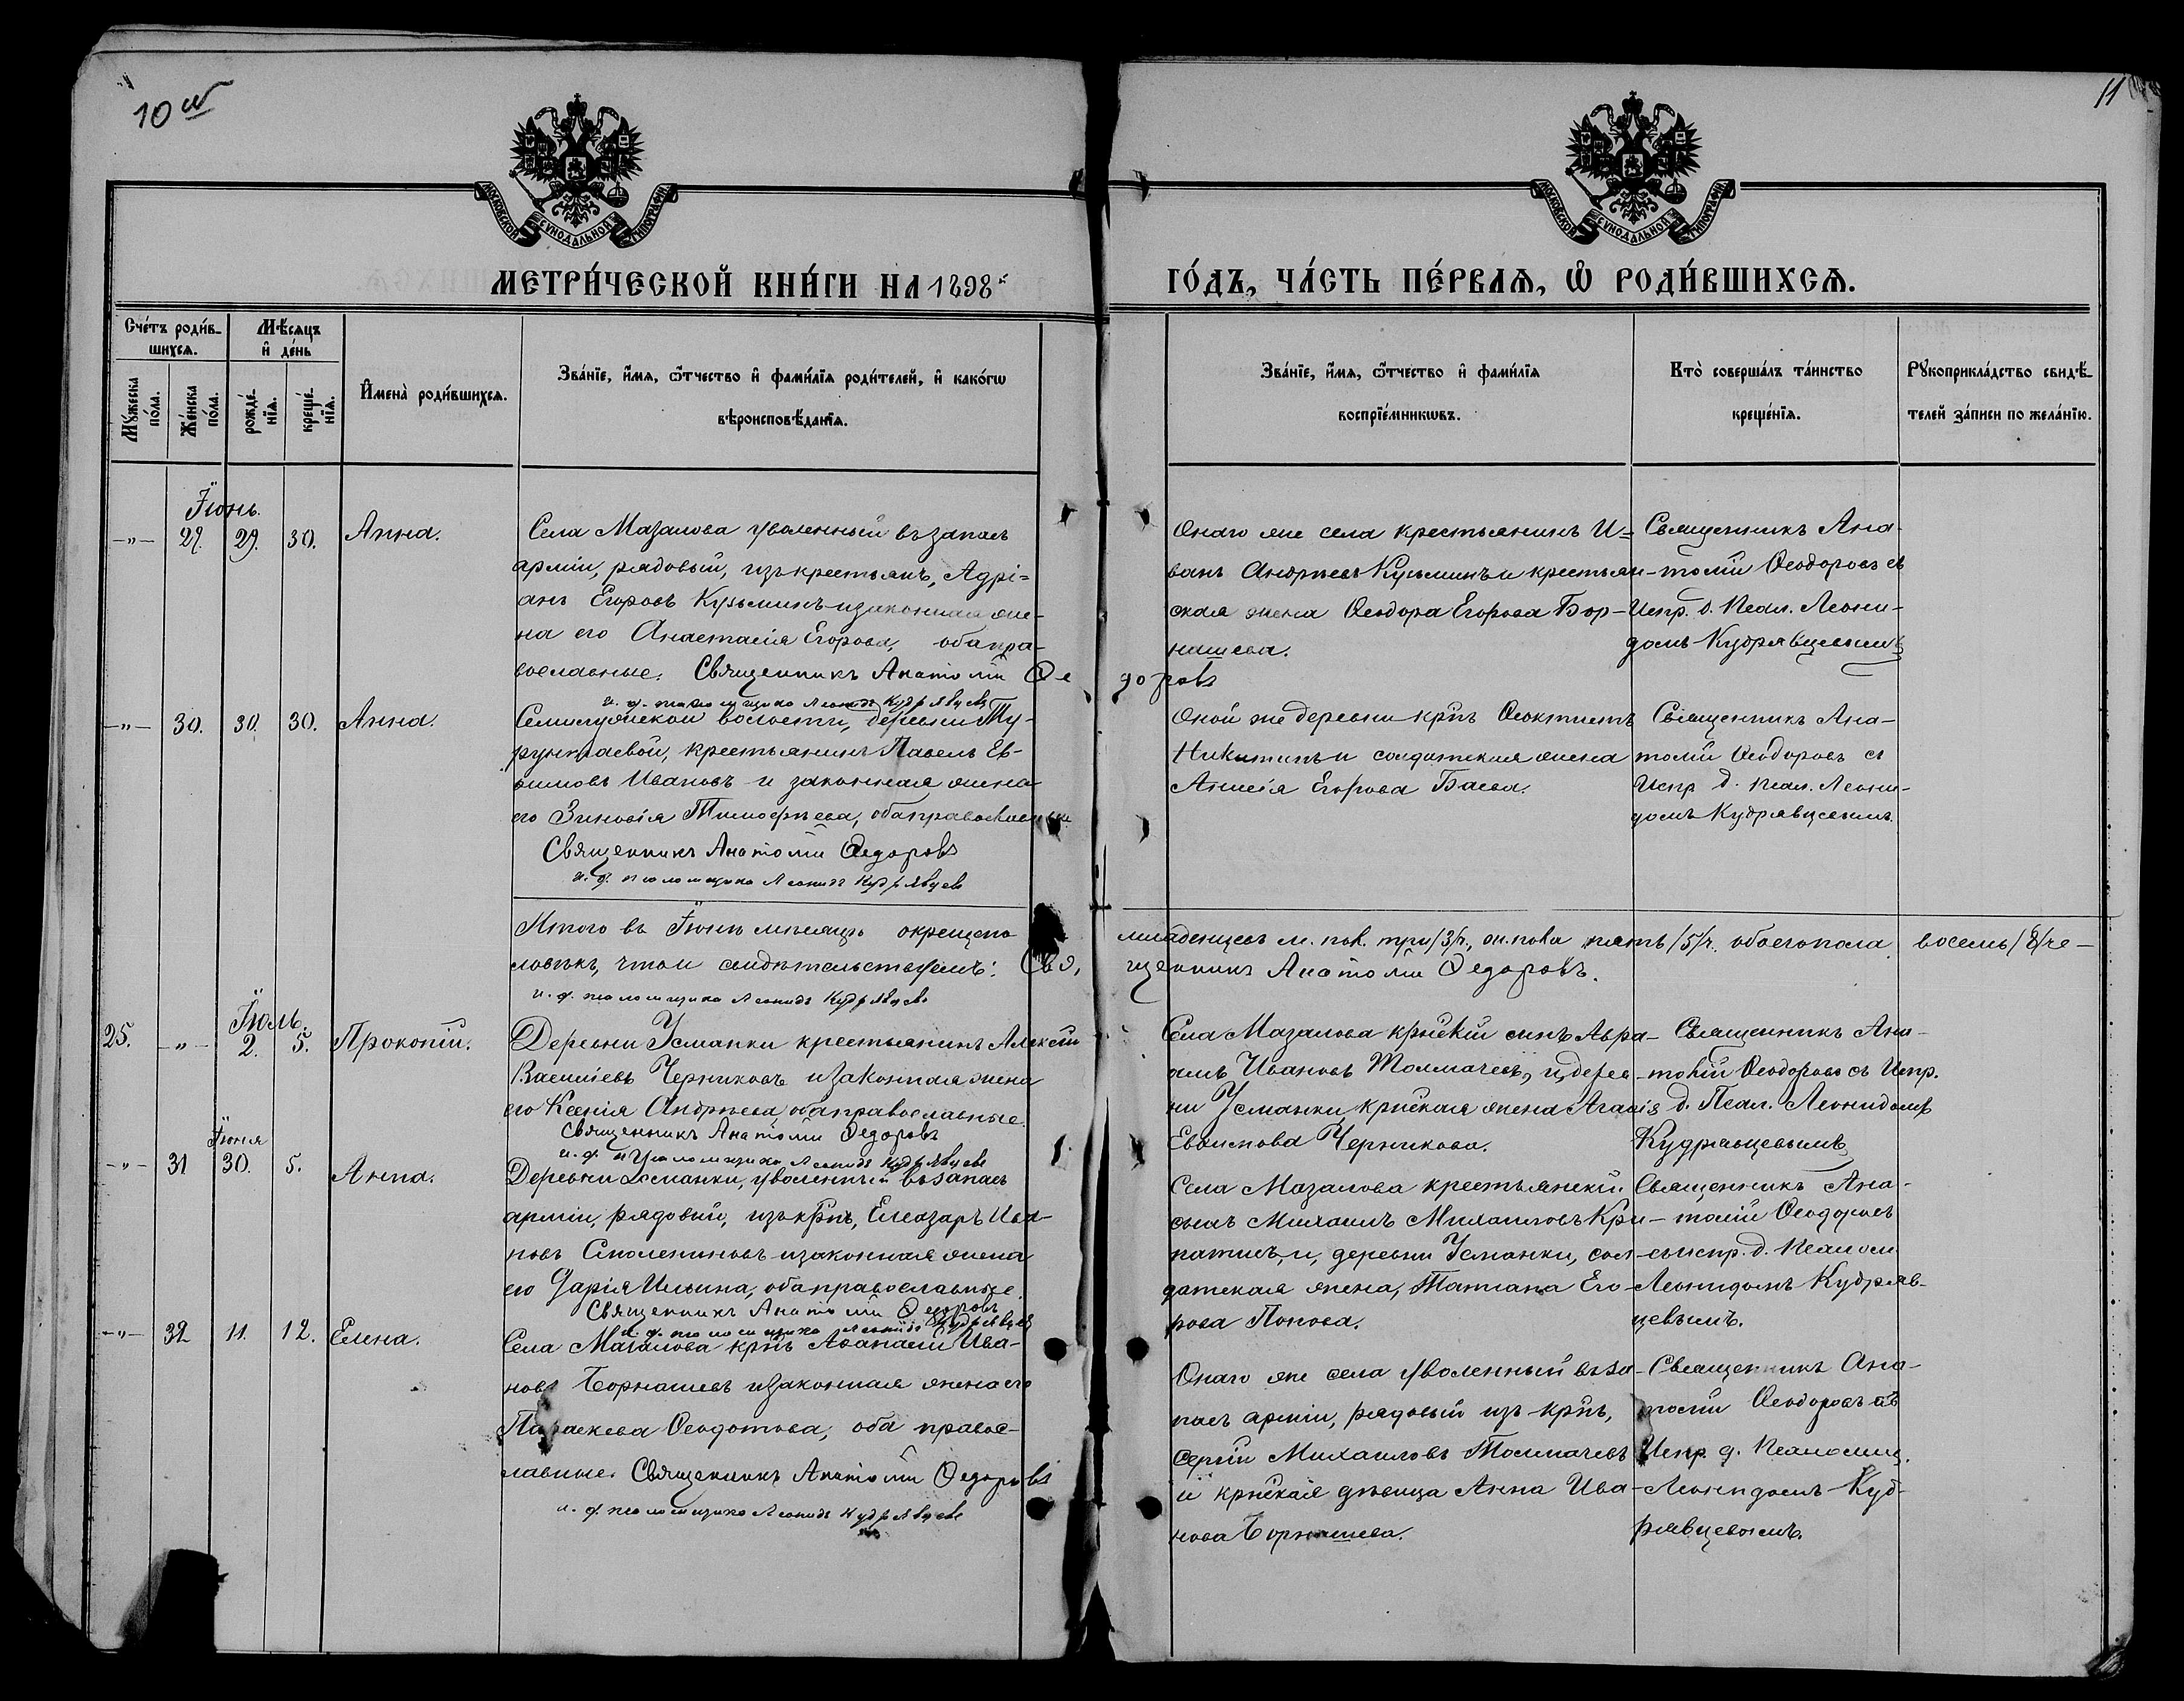 10
11
МОСКОВСКОЙ СѴНОДАЛЬНОЙ ТИПОГРАФІИ
МОСКОВСКОЙ СѴНОДАЛЬНОЙ ТИПОГРАФІИ
МЕТРИ́ЧЕСКОЙ КНИ́ГИ НА 1898й
ГО́ДЪ, ЧА́СТЬ ПЕ́РВАѦ, Ѡ РОДИ́ВШИХСѦ.
Сче́тъ роди́в-
шихсѧ.
Мѣ́сѧцъ
и де́нь
Мꙋ́жеска по́ла.
Же́нска по́ла.
рожде́-нїѧ.
креще́-нїѧ.
И҆мена̀ роди́вшихсѧ.
Зва́нїе, и҆́мѧ, ѻ҆́тчество и҆ фами́лїѧ роди́телей, и҆ како́гѡ
вѣроисповѣ́данїѧ.
Зва́нїе, и҆́мѧ, ѻ҆́тчество и҆ фами́лїѧ
воспрїе́мникѡвъ.
Кто̀ соверша́лъ та́инство
креще́нїѧ.
Рꙋкоприкла́дство свидѣ́-
телей за́писи по жела́нїю.
Іюнь.
-"- 29. 29. 30. Анна.
Села Мазалова уволенный въ запасъ
арміи, рядовый, изъ крестьянъ, Адрі=
анъ Егоровъ Кузьминъ и законная же-
на его Анастасія Егорова, оба пра-
вославные. Священникъ Анатолій Ѳе
доровъ
и. д. псаломщика Леонидъ Кудрявцевъ
Онаго же села крестьянинъ И=
ванъ Андреевъ Кузьминъ и крестьян-
ская жена Ѳеодора Егорова Бор-
нашева.
Священникъ Ана-
толій Ѳеодоровъ съ
Испр. д. Псал. Леони-
домъ Кудрявцевымъ
-"- 30. 30. 30. Анна.
Семилужской волости, деревни Ту-
рунтаевой, крестьянинъ Павелъ Ев-
ѳимовъ Ивановъ и законная жена
его Зиновія Тимофѣева, оба православные
Священникъ Анатолій Ѳедоровъ
и. д. псаломщика Леонидъ Кудрявцевъ
Оной же деревни крнъ Ѳеоктистъ
Никитинъ и солдатская жена
Анисія Егорова Баева.
Священникъ Ана-
толій Ѳеодоровъ съ
Испр д. псал. Леони-
домъ Кудрявцевымъ
Итого въ Іюнѣ мѣсяцѣ окрещено
младенцевъ м. пол. три /3/ч., ж. пола пять /5/ч. обоего пола восемь /8/ че-
ловѣкъ, что и свидѣтельствуемъ: Свя,
щенникъ Анатолій Ѳедоровъ.
и. д. псаломщика Леонидъ Кудрявцевъ
Іюль.
25. -"- 2. 5. Прокопій.
Деревни Усманки крестьянинъ Алексѣй
Васильевъ Черниковъ и законная жена
его Ксенія Андреева, оба православные.
Священникъ Анатолій Ѳедоровъ
и. д. псаломщика Леонидъ Кудрявцевъ
Села Мазалова крнскій сынъ Авра-
амъ Ивановъ Толмачевъ, и, дерев-
ни Усманки, крнская жена Агаѳія
Евѳимова Черникова.
Священникъ Ана-
толій Ѳеодоровъ съ Испр.
д. Псал. Леонидомъ
Кудрявцевымъ
Іюня
-"- 31 30. 5. Анна.
Деревни Усманки, уволенный въ запасъ
арміи, рядовый, изъ крнъ, Елеазаръ Ива-
новъ Смолениновъ и законная жена
его Дарія Ильина, оба православные.
Священникъ Анатолій Ѳедоровъ
и. д. псаломщика Леонидъ Кудрявцевъ
Села Мазалова крестьянскій
сынъ Михаилъ Михаиловъ Кри-
патчъ, и, деревни Усманки, сол-
датская жена, Татіана Его-
рова Попова.
Священникъ Ана-
толій Ѳеодоровъ
съ испр. д. Псаломщ
Леонидомъ Кудряв-
цевымъ.
-"- 32 11. 12. Елена.
Села Мазалова крнъ Аѳанасій Ива-
новъ Борнашевъ и законная жена его
Параскева Ѳеодотова, оба правос-
лавные. Священникъ Анатолій Ѳедоровъ
и. д. псаломщика Леонидъ Кудрявцевъ
Онаго же села уволенный въ за-
пасъ арміи, рядовый изъ крнъ,
Сергій Михаиловъ Толмачевъ
и крнская дѣвица Анна Ива-
нова Борнашева.
Священникъ Ана-
толій Ѳеодоровъ съ
Испр. д. Псаломщ.
Леонидомъ Куд-
рявцевымъ.